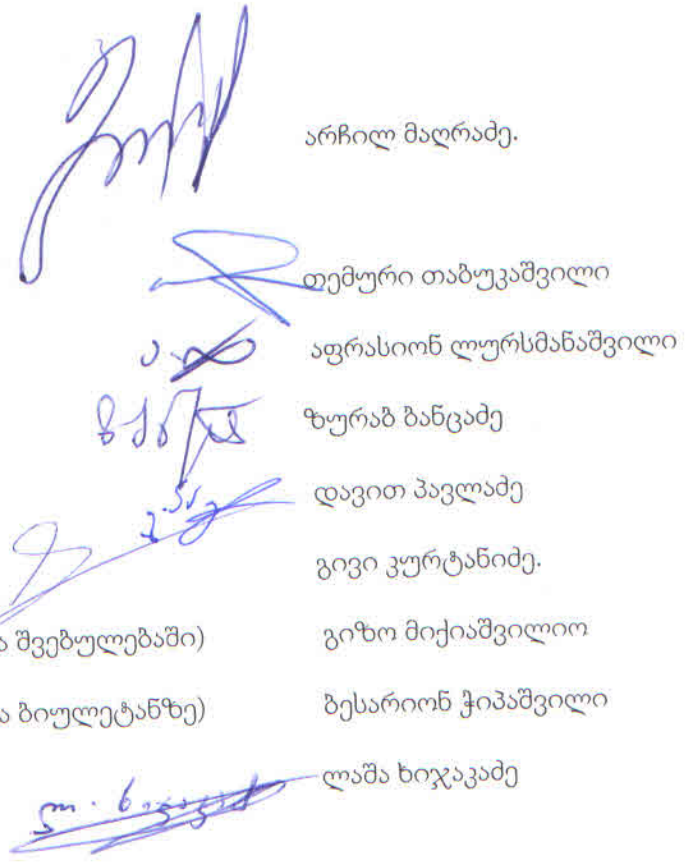 არჩილ მაღრაძე.
თემური თაბუკაშვილი
აფრასიონ ლურსმანაშვილი
ზურაბ ბანცაძე
დავით პავლაძე
გივი კურტანიძე.
ა შვებულებაში) გიზო მიქიაშვილიო
ა ბიულეტანზე) ბესარიონ ჭიპაშვილი
ლაშა ხიჯაკაძე